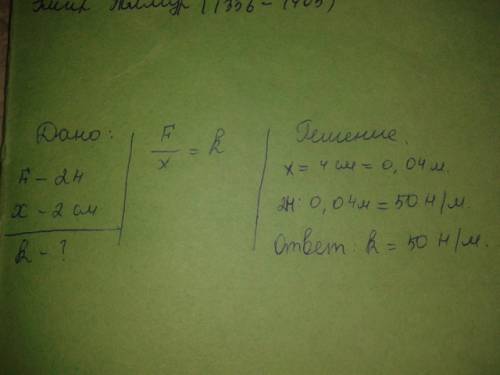 Эмир Тимур (1336 - 1405)
Дано:
F - 2Н
x - 2 см
k - ?
F/x = k
Решение.
x = 4 см = 0,04 м.
2Н : 0,04 м = 50 Н/м.
Ответ: k = 50 Н/м.